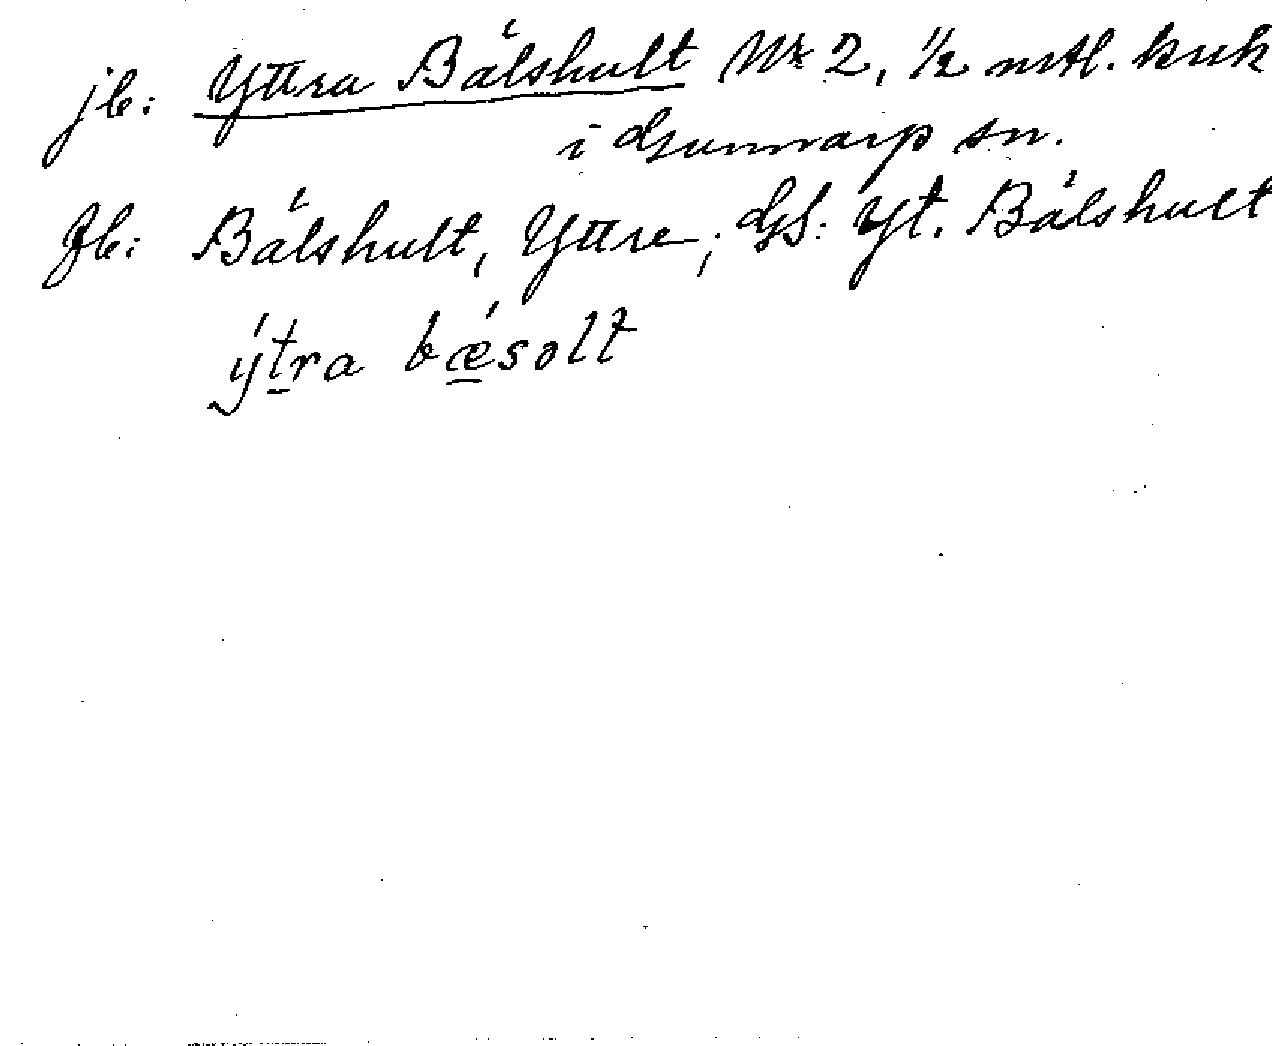 jb: Yttra Bälshult № 2, ½ mtl. krsk
i Gunnarp sn.
Jb: Bälshult, Yttre; GS: Yt. Bälshult
ýtra bǽsolt